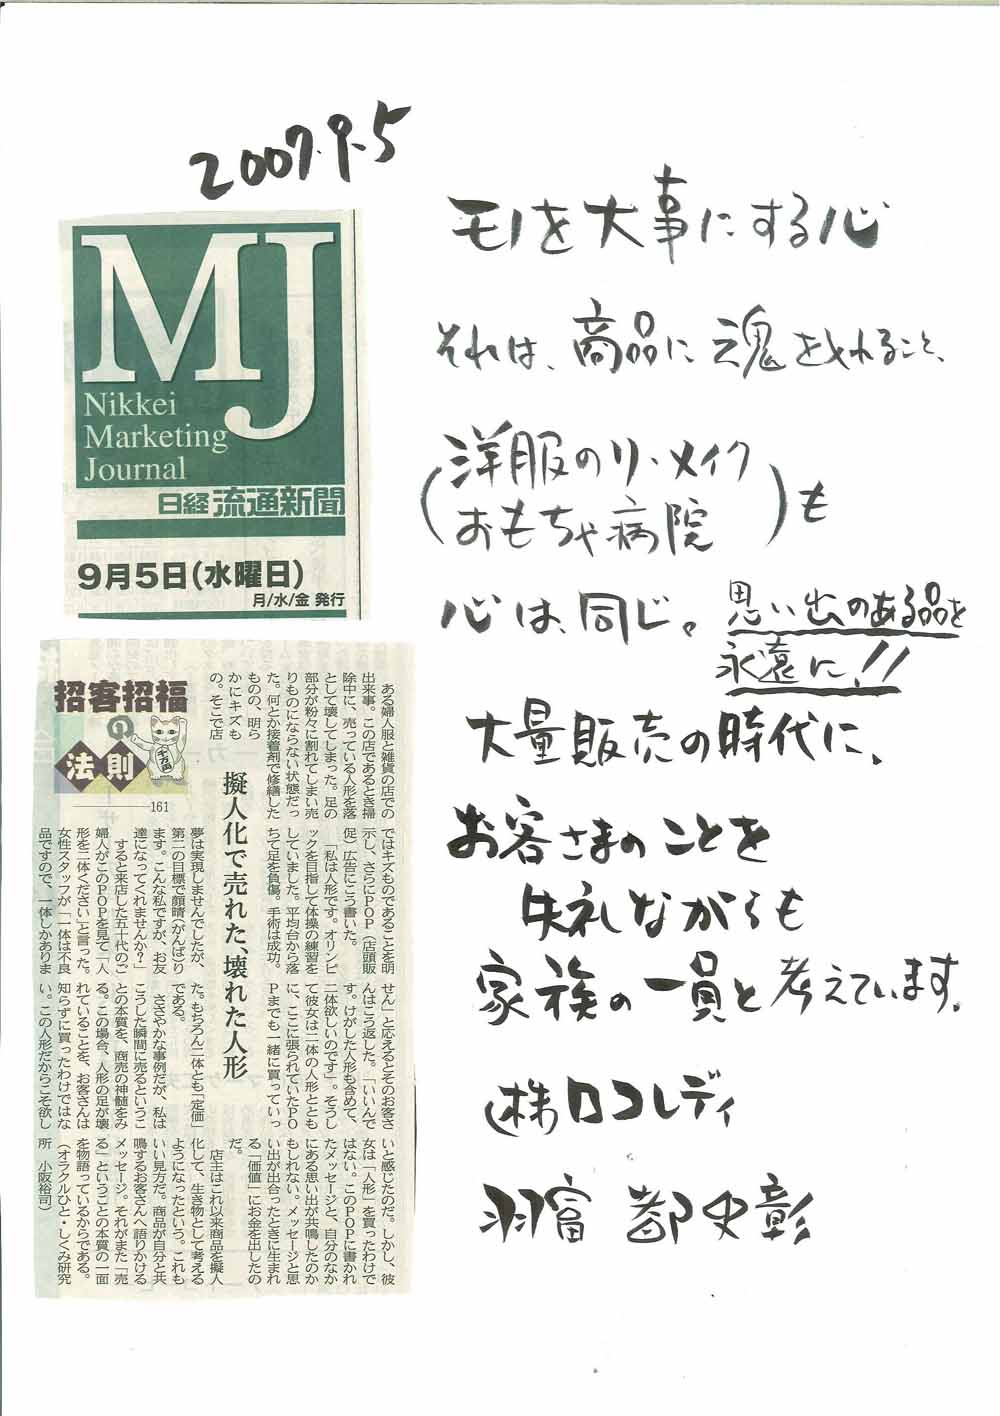 2007.9.5
MJ
Nikkei
Marketing
Journal
日経 流通新聞
9月5日(水曜日)
月/水/金 発行
招客招福
の
法則
千万両
161
擬人化で売れた、壊れた人形
ある婦人服と雑貨の店での
出来事。この店であるとき掃
除中に、売っている人形を落
として壊してしまった。足の
部分が粉々に割れてしまい売
りものにならない状態だっ
た。何とか接着剤で修繕した
ものの、明ら
かにキズも
の。そこで店
ではキズものであることを明
示し、さらにPOP（店頭販
促）広告にこう書いた。
「私は人形です。オリンピ
ックを目指して体操の練習を
していました。平均台から落
ちて足を負傷。手術は成功。
夢は実現しませんでしたが、
第二の目標で顔晴（がんば）り
ます。こんな私ですが、お友
達になってくれませんか？」
すると来店した五十代のご
婦人がこのPOPを見て「人
形を二体ください」と言った。
女性スタッフが「一体は不良
品ですので、一体しかありま
せん」と応えるとそのお客さ
んはこう返した。「いいんで
す。けがした人形も含めて、
二体欲しいのです」。そうし
て彼女は二体の人形ととも
に、ここに張られていたPO
Pまでも一緒に買っていっ
た。もちろん二体とも「定価」
である。
ささやかな事例だが、私は
こうした瞬間に売るというこ
との本質を、商売の神髄をみ
る。この場合、人形の足が壊
れていることを、お客さんは
知らずに買ったわけではな
い。この人形だからこそ欲し
いと感じたのだ。しかし、彼
女は「人形」を買ったわけで
はない。このPOPに書かれ
たメッセージと、自分のなか
にある思い出が共鳴したのか
もしれない。メッセージと思
い出が出合ったときに生まれ
る「価値」にお金を出したの
だ。
店主はこれ以来商品を擬人
化して、生き物として考える
ようになったという。これも
いい見方だ。商品が自分と共
鳴するお客さんへ語りかける
メッセージ。それがまた「売
る」ということの本質の一面
を物語っているからである。
（オラクルひと・しくみ研究
所　小阪裕司）
モノを大事にする心
それは、商品に魂を入れること、
(洋服のリ・メイク
おもちゃ病院)も
心は、同じ。思い出のある品を
永遠に!!
大量販売の時代に、
お客さまのことを
失礼ながらも
家族の一員と考えています。
(株)ロコレディ
羽富 都史彰